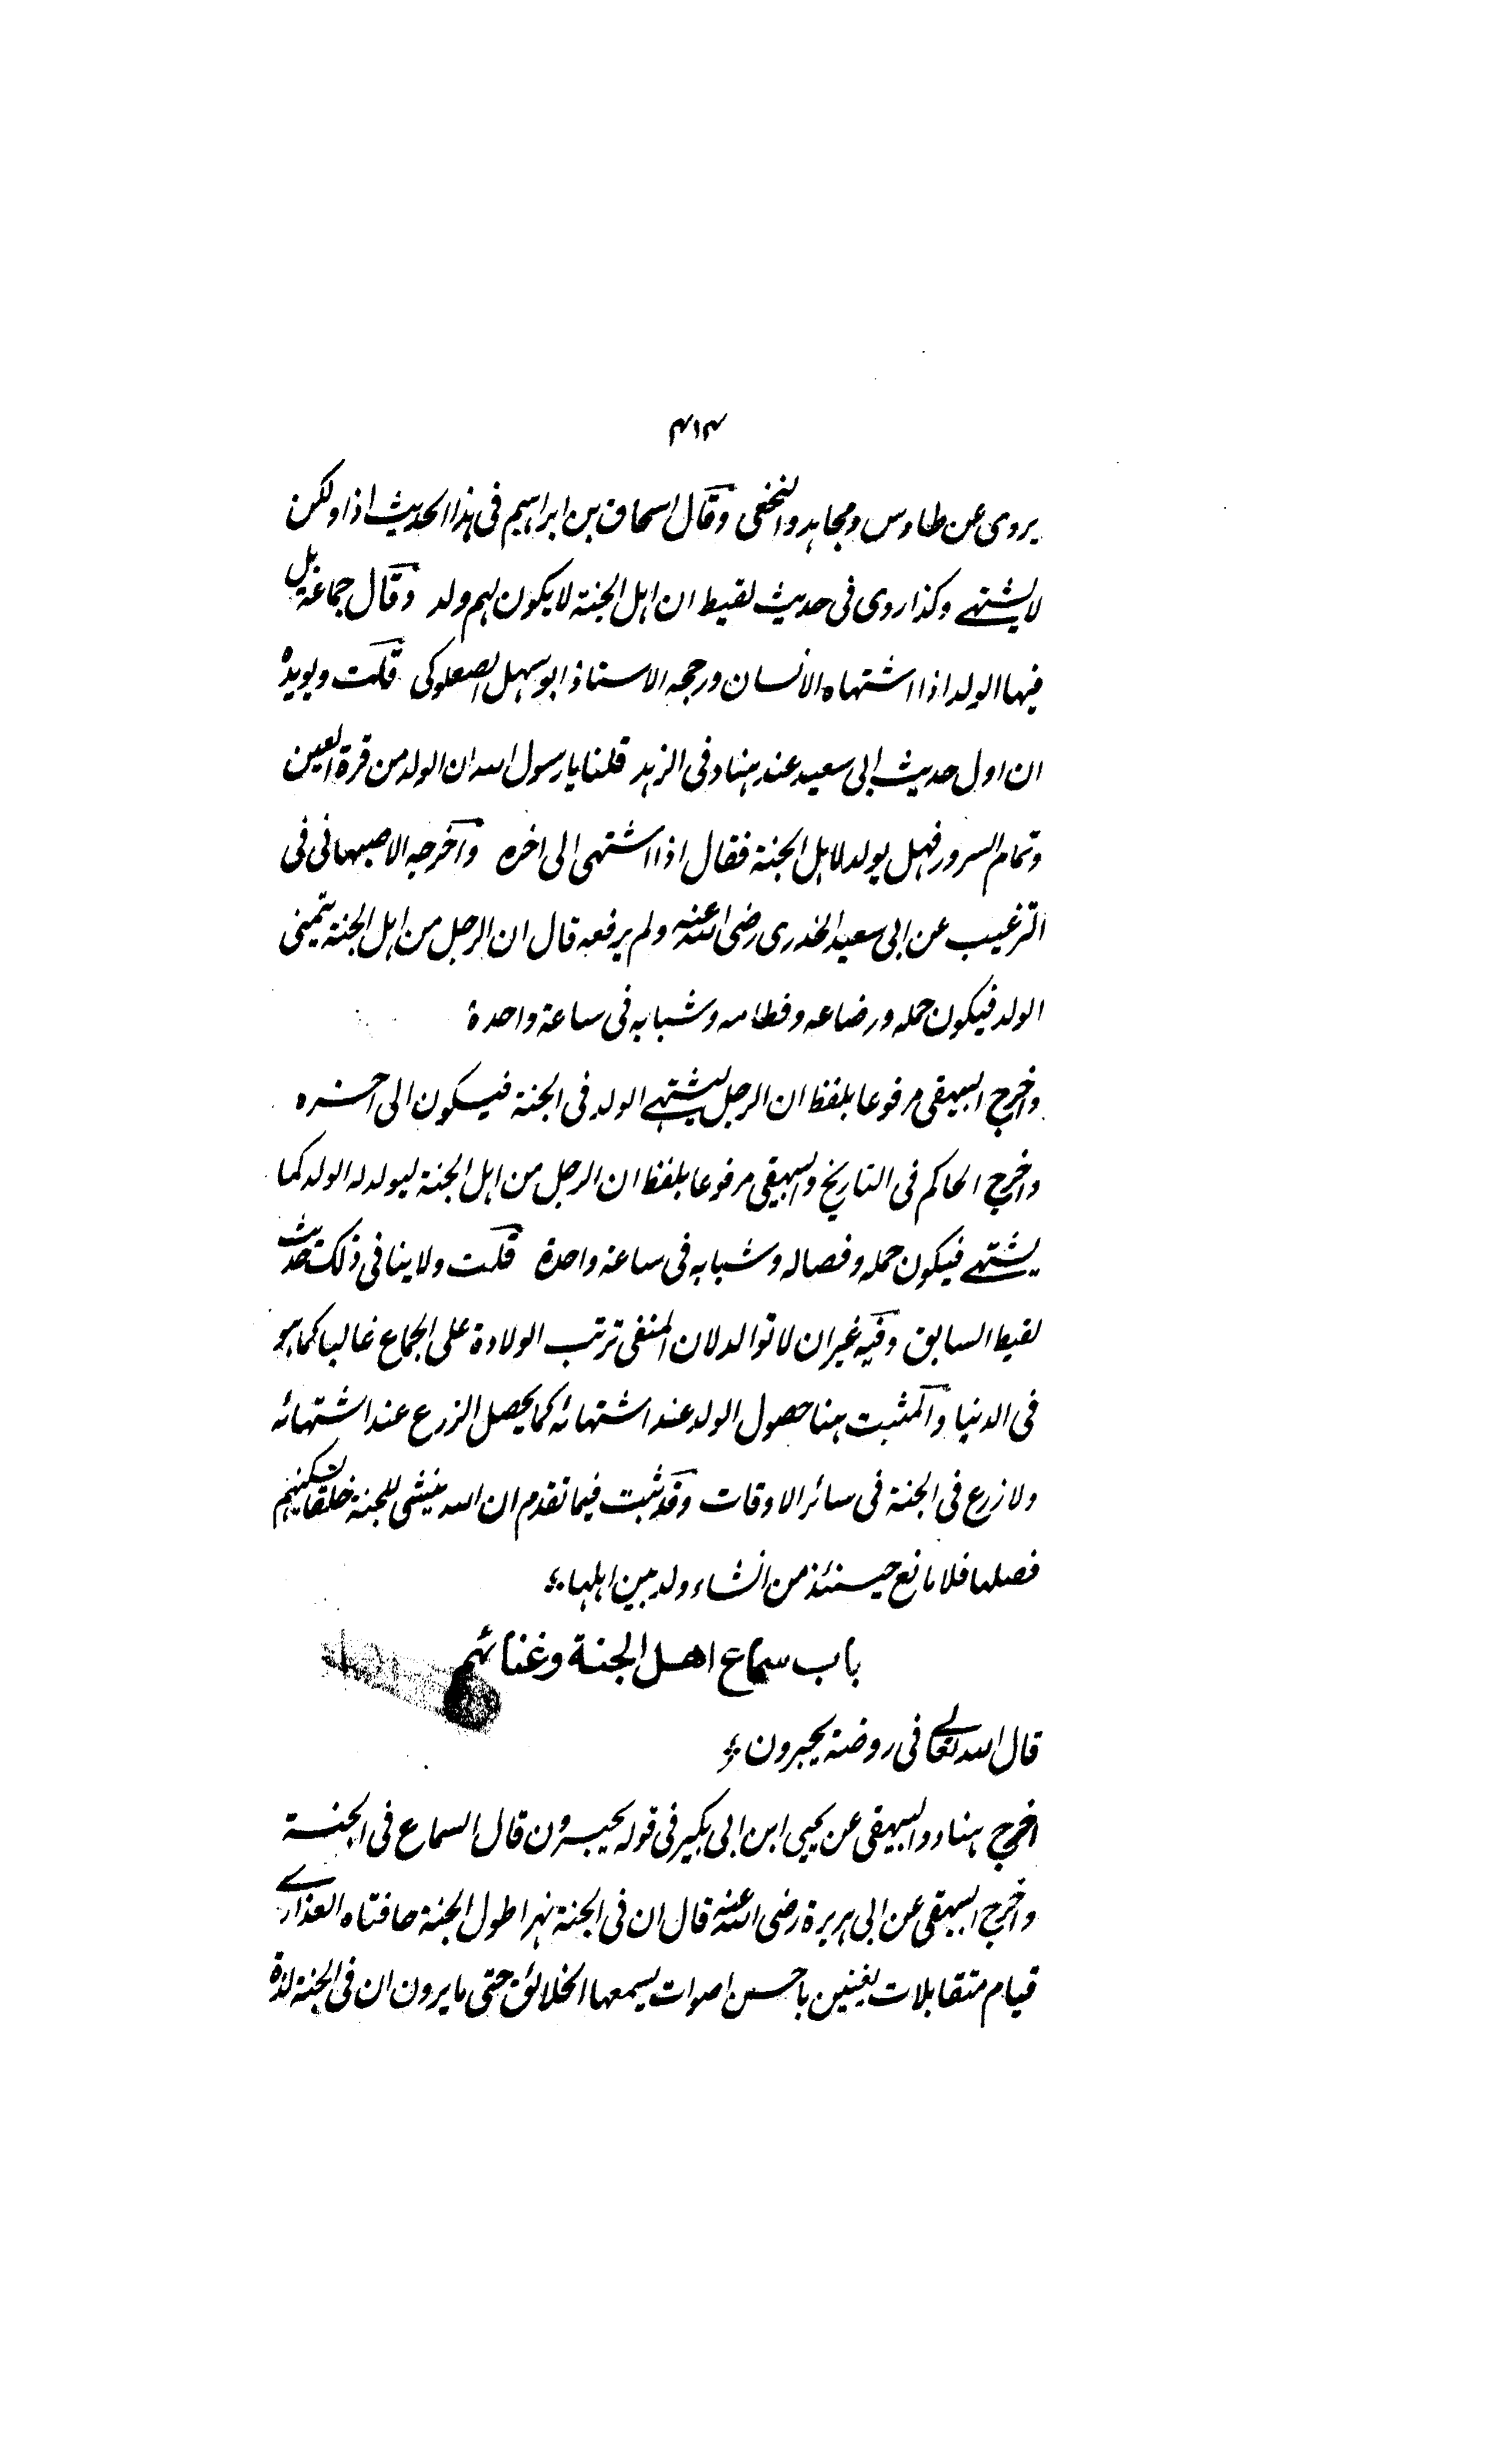 ۴۱۴
يروى عن طاوس ومجاهد والنخعى وقال اسحاق بن ابراهيم فى هذا الحديث اذا ولكن
لا يشتهى وكذا روى فى حديث لقيط ان اهل الجنة لا يكون لهم ولد وقال جماعة بل
فيها الولد اذا اشتهاه الانسان ورجحه الاستاذ ابو سهل الصعلوكى قلت ويويده
ان اول حديث ابى سعيد عند هناد فى الزهد قلنا يا رسول الله ان الولد من قرة العين
وتمام السرور فهل يولد لاهل الجنة فقال اذا اشتهى الى اخره واخرجه الاصبهانى فى
الترغيب عن ابى سعيد الخدرى رضى الله عنه ولم يرفعه قال ان الرجل من اهل الجنة يتمنى
الولد فيكون حمله ورضاعه وفطامه وشبابه فى ساعة واحدة
واخرج البيهقى مرفوعا بلفظ ان الرجل يشتهى الولد فى الجنة فيكون الى اخره
واخرج الحاكم فى التاريخ والبيهقى مرفوعا بلفظ ان الرجل من اهل الجنة ليولد له الولد كما
يشتهى فيكون حمله وفصاله وشبابه فى ساعة واحدة قلت ولا ينافى ذلك حديث
لقيط السابق وفيه غير ان لا توالد لان المنفى ترتب الولادة على الجماع غالبا كما هو
فى الدنيا والمثبت هنا حصول الولد عند اشتهائه كما يحصل الزرع عند اشتهائه
ولا زرع فى الجنة فى سائر الاوقات وقد ثبت فيما تقدم ان الله ينشى للجنة خلقا يسكنهم
فصلها فلا مانع حينئذ من انشاء ولد بين اهلها
باب سماع اهل الجنة وغنائهم
قال الله تعالى فى روضة يحبرون
اخرج هناد والبيهقى عن يحيى ابن ابى بكير فى قوله يحبرون قال السماع فى الجنة
واخرج البيهقى عن ابى هريرة رضى الله عنه قال ان فى الجنة نهرا طول الجنة حافتاه العذارى
قيام متقابلات يغنين باحسن اصوات يسمعها الخلائق حتى ما يرون ان فى الجنة لذة